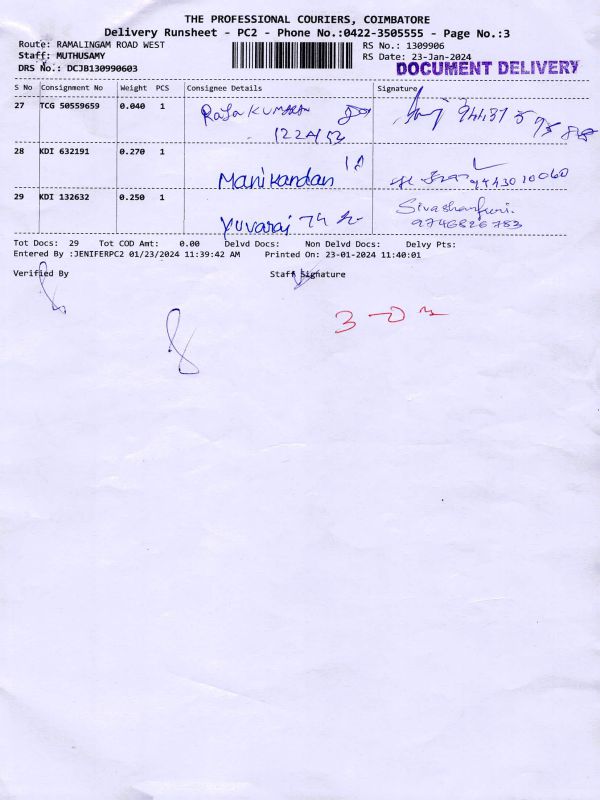 THE PROFESSIONAL COURIERS, COIMBATORE
Delivery Runsheet - PC2 - Phone No.:0422-3505555 - Page No.:3
Route: RAMALINGAM ROAD WEST
RS No.: 1309906
Staff: MUTHUSAMY
RS Date: 23-Jan-2024
DRS No.: DCJB130990603
DOCUMENT DELIVERY
S No Consignment No Weight PCS Consignee Details Signature
27 TCG 50559659 0.040 1 Raja KUMARAN
28 KDI 632191 0.270 1 Manikandan 9443010060
29 KDI 132632 0.250 1 Yuvaraj 9746826783
Tot Docs: 29 Tot COD Amt: 0.00 Delvd Docs: Non Delvd Docs: Delvy Pts:
Entered By :JENIFERPC2 01/23/2024 11:39:42 AM Printed On: 23-01-2024 11:40:01
Verified By Staff Signature